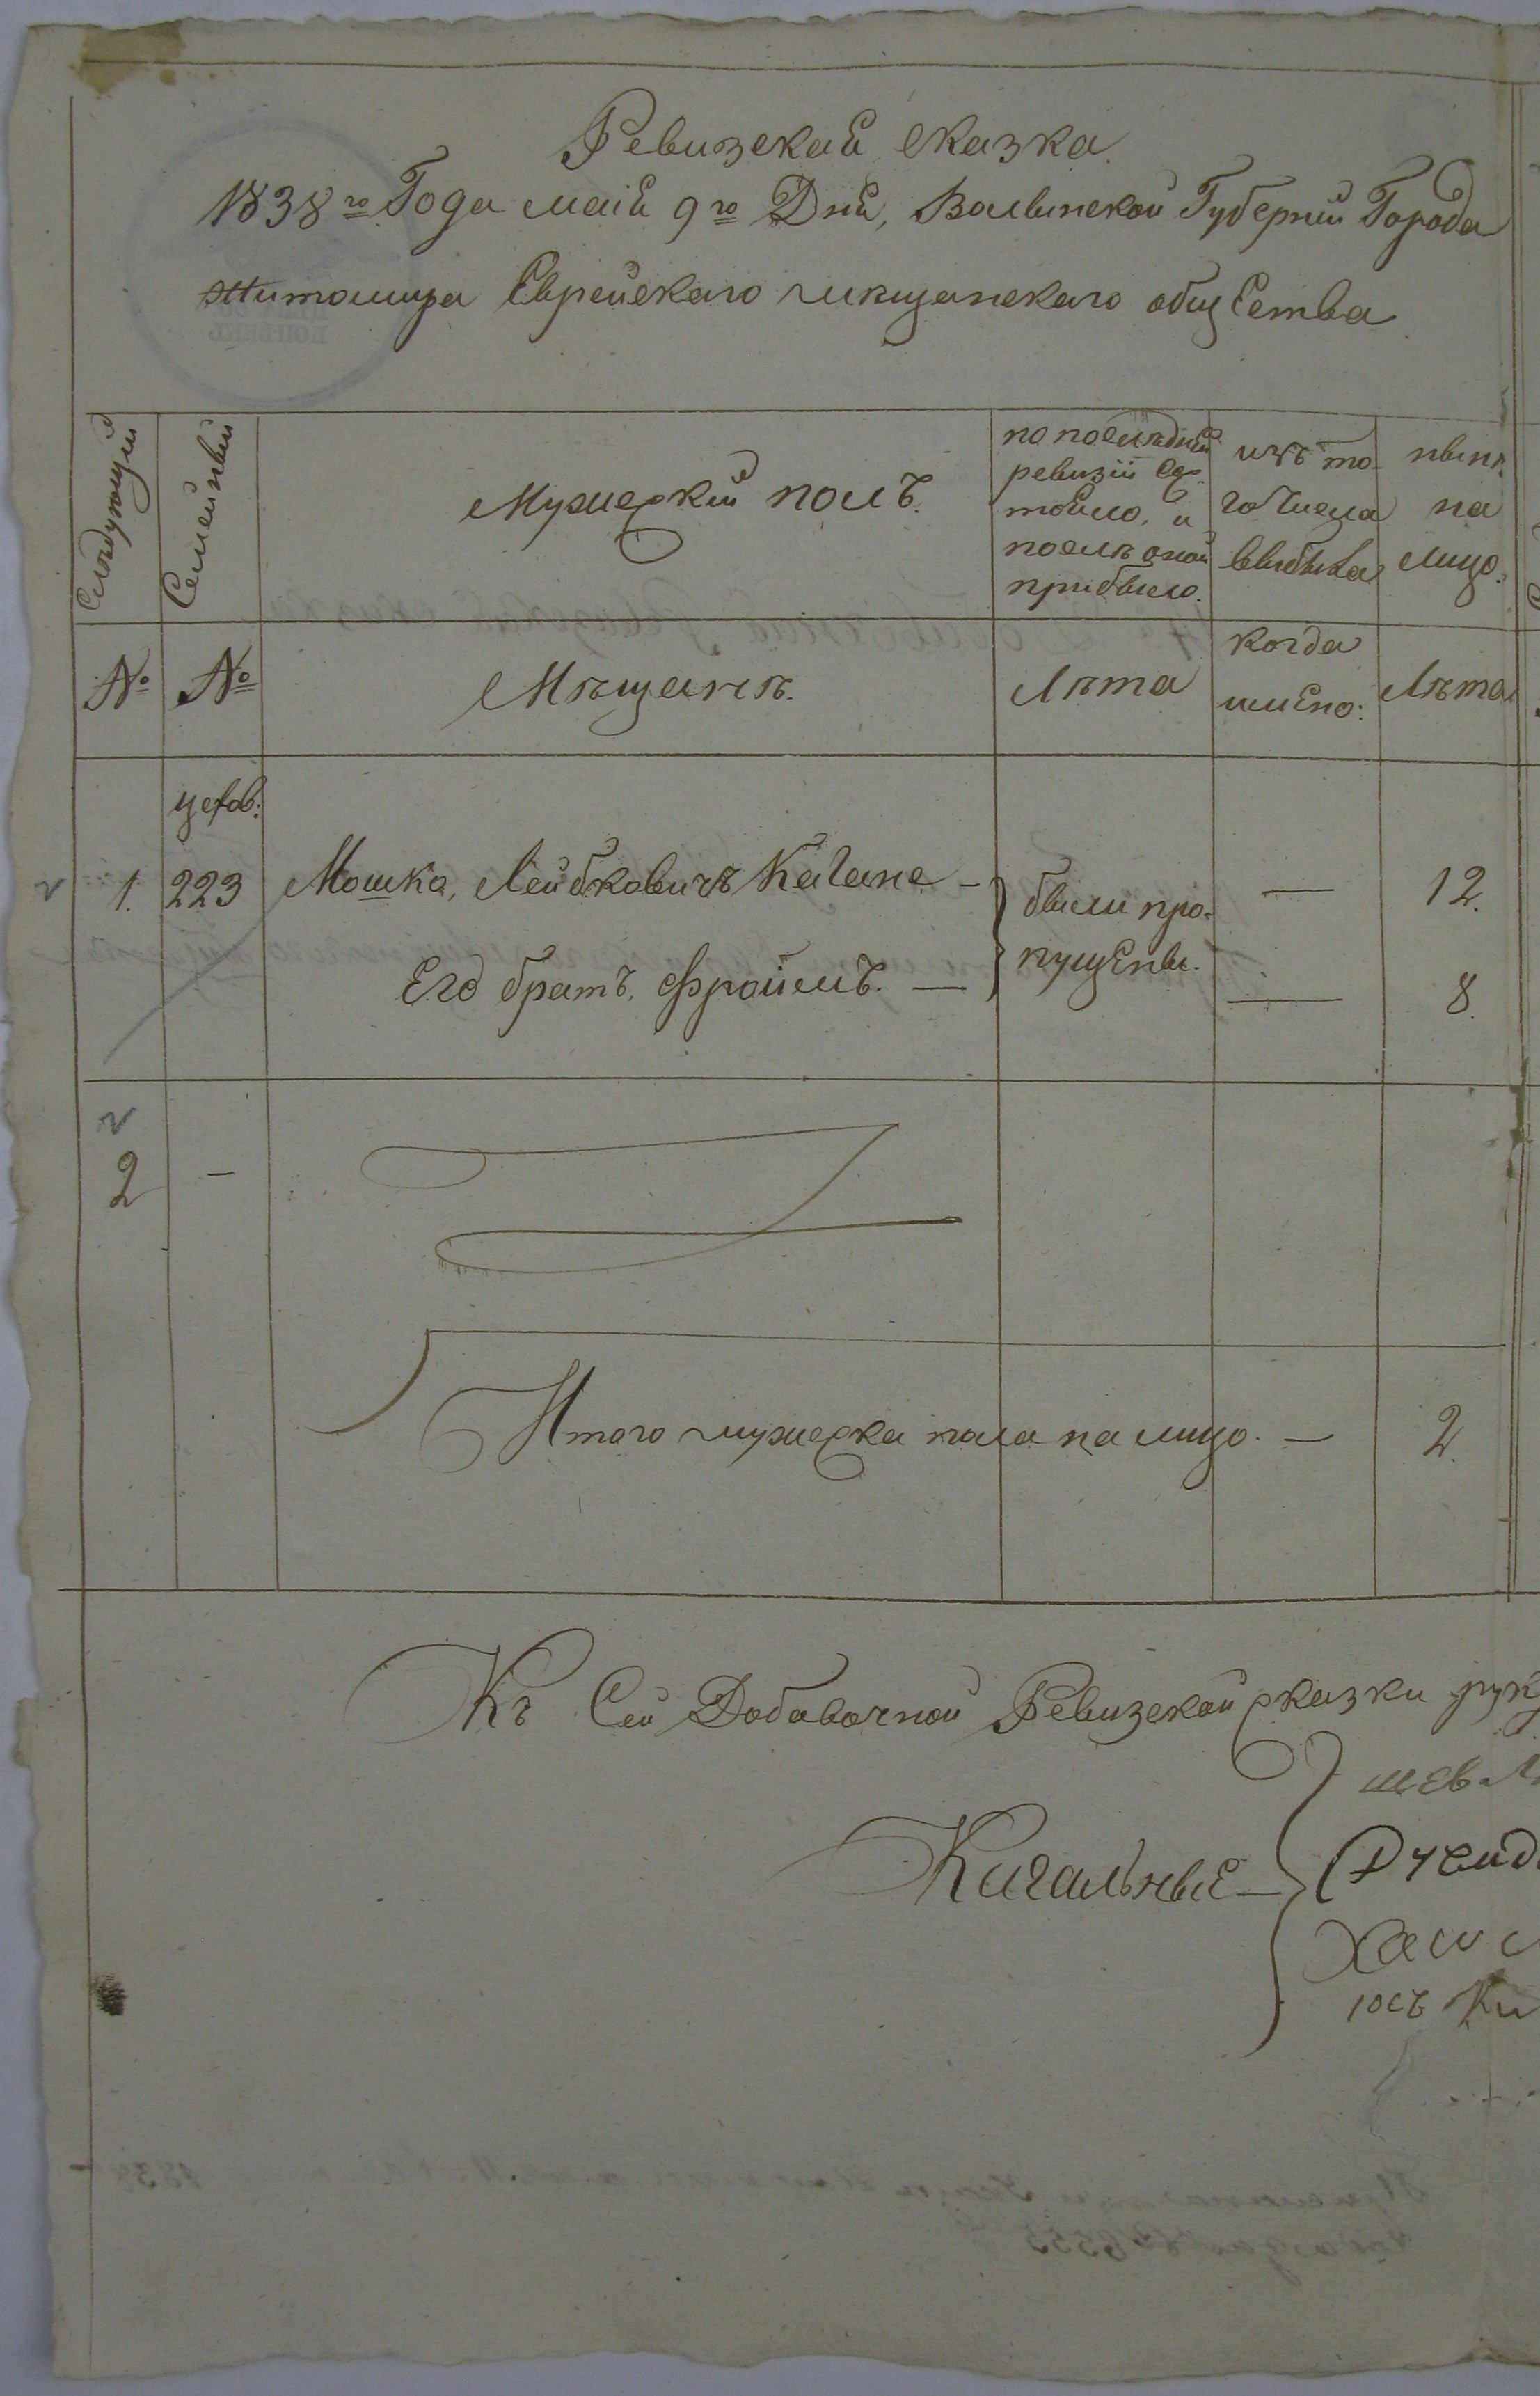 Ревизская сказка
1838го Года маія 9го Дня, Волынской Губерніи Города
Житомира Еврейскаго мещанскаго общества
Слѣдующій
Семейный
Мужескій полъ.
по послѣдней
ревизіи со-
тояло, и
послѣ оной
прибыло.
изъ то-
го числа
выбыла
нынѣ
на
лицо.
№
№
Мѣщанѣ.
Лѣта
когда
имено:
Лѣта
1.
223
Мошко, Лейбковичъ Кагане —
были про-
—
12.
Его братъ, Фроимъ. —
пущены.
—
8.
2
—
Итого мужеска пола на лицо. —
2.
Къ Сей Добавочной Ревизской сказки рук
Кагальные —